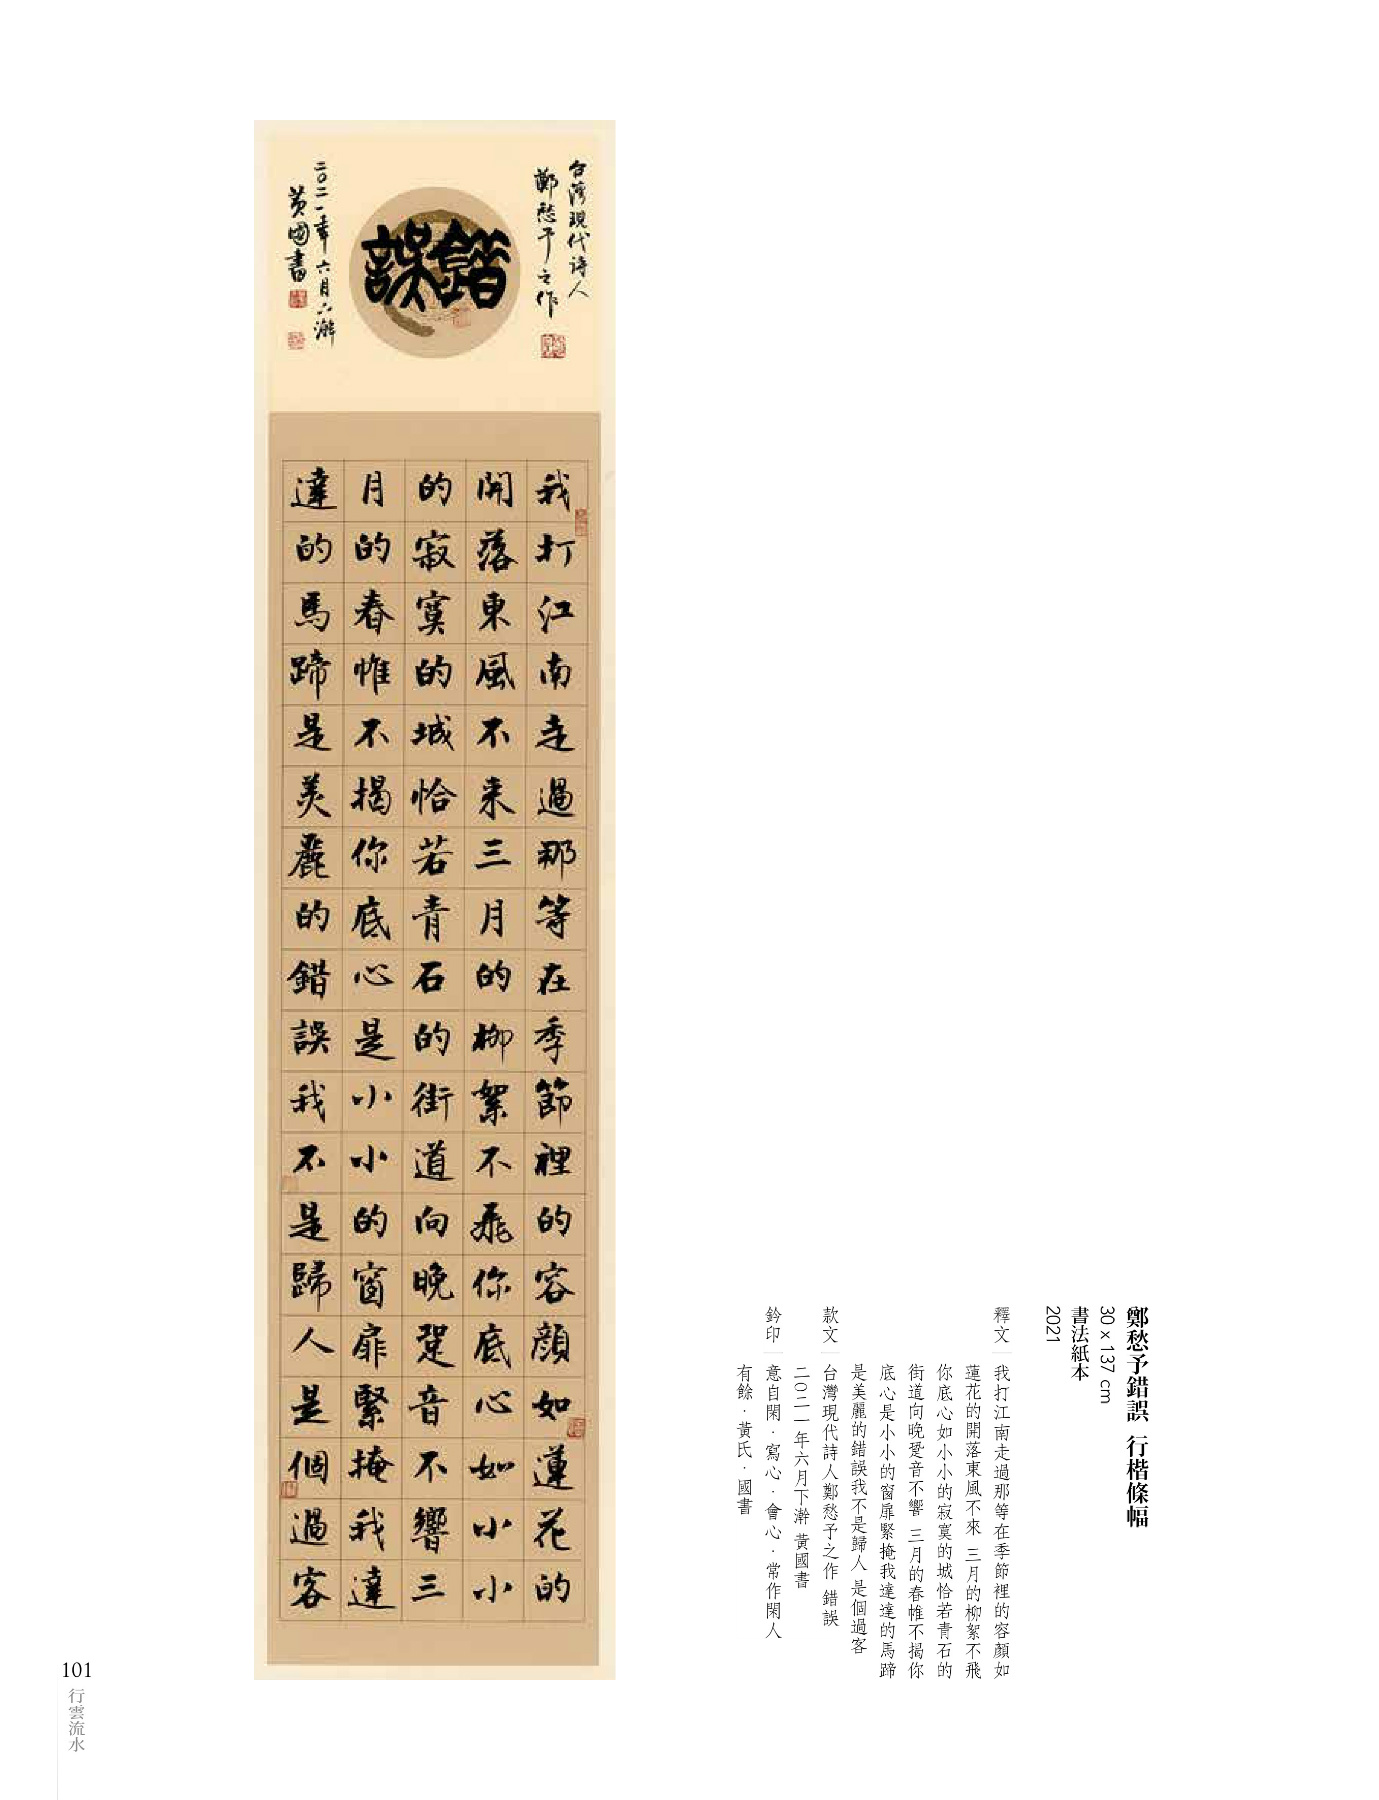 台灣現代詩人
鄭愁予之作
錯誤
二〇二一年六月下澣
黃國書
我打江南走過那等在季節裡的容顏如蓮花的
開落東風不来三月的柳絮不飛你底心如小小
的寂寞的城恰若青石的街道向晚跫音不響三
月的春帷不揭你底心是小小的窗扉緊掩我達
達的馬蹄是美麗的錯誤我不是歸人是個過客
鄭愁予錯誤 行楷條幅
30 x 137 cm
書法紙本
2021
釋文 我打江南走過那等在季節裡的容顏如
蓮花的開落東風不來 三月的柳絮不飛
你底心如小小的寂寞的城恰若青石的
街道向晚跫音不響 三月的春帷不揭你
底心是小小的窗扉緊掩我達達的馬蹄
是美麗的錯誤我不是歸人 是個過客
款文 台灣現代詩人鄭愁予之作 錯誤
二〇二一年六月下澣 黃國書
鈐印 意自閑．寫心．會心．常作閑人
有餘．黃氏．國書
101
行雲流水